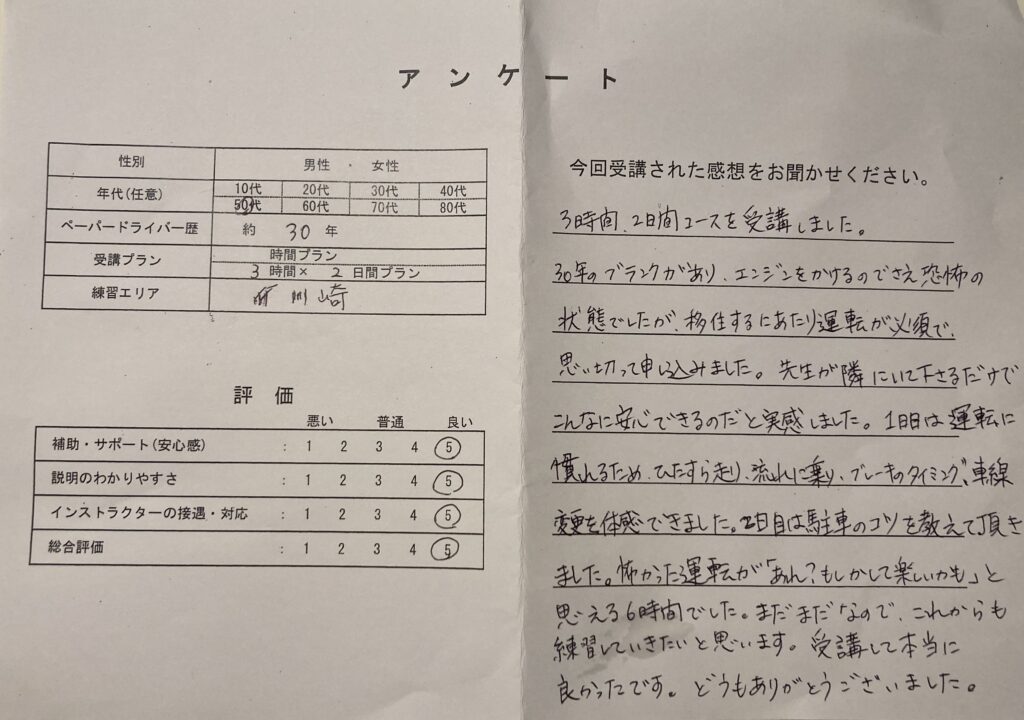 アンケート
性別 男性 ・ 女性
年代(任意) 10代 20代 30代 40代
50代 60代 70代 80代
ペーパードライバー歴 約 30 年
受講プラン 時間プラン
3 時間× 2 日間プラン
練習エリア 川崎
評価
悪い 普通 良い
補助・サポート(安心感) : 1 2 3 4 5
説明のわかりやすさ : 1 2 3 4 5
インストラクターの接遇・対応 : 1 2 3 4 5
総合評価 : 1 2 3 4 5
今回受講された感想をお聞かせください。
3時間、2日間コースを受講しました。
30年のブランクがあり、エンジンをかけるのでさえ恐怖の
状態でしたが、移住するにあたり運転が必須で、
思い切って申し込みました。先生が隣にいて下さるだけで
こんなに安心できるのだと実感しました。1日目は運転に
慣れるため、ひたすら走り、流れに乗り、ブレーキのタイミング、車線
変更を体感できました。2日目は駐車のコツを教えて頂き
ました。怖かった運転が「あれ?もしかして楽しいかも」と
思える6時間でした。まだまだなので、これからも
練習していきたいと思います。受講して本当に
良かったです。どうもありがとうございました。